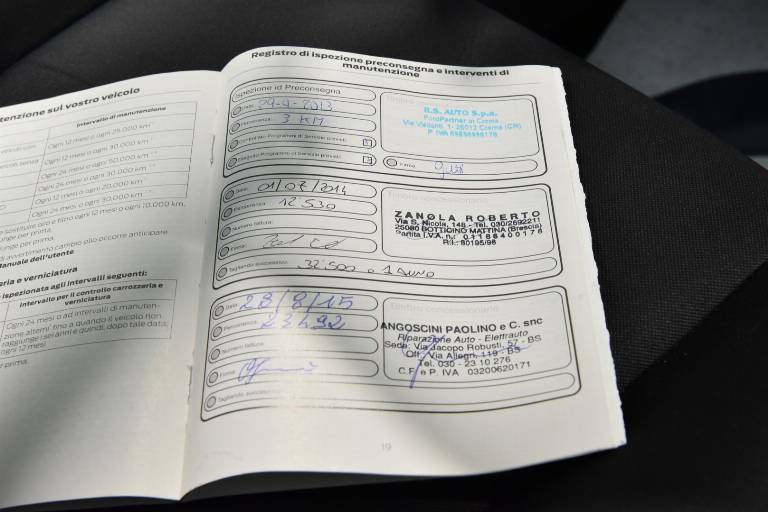 tenzione sul vostro veicolo
Intervallo di manutenzione
Ogni 12 mesi o ogni 25.000 km
Ogni 12 mesi o ogni 30.000 km
Ogni 24 mesi o ogni 50.000 km
Ogni 24 mesi o ogni 30.000 km
Ogni 12 mesi o ogni 20.000 km
Ogni 24 mesi o ogni 30.000 km
e sostituire olio e filtro ogni 12 mesi o ogni 10.000 km,
unge per prima.
giunge per prima.
di avvertimento cambio olio occorre anticipare
Manuale dell'utente
eria e verniciatura
ispezionata agli intervalli seguenti:
Intervallo per il controllo carrozzeria e
verniciatura
Ogni 24 mesi o ad intervalli di manuten-
zione alterni, fino a quando il veicolo non
raggiunge i sei anni e quindi, dopo tale data,
ogni 12 mesi
prima.
Registro di ispezione preconsegna e interventi di
manutenzione
Ispezione id Preconsegna
Data: 29-4-2013
Percorrenza: 3 KM
Controllato Programmi di Servizio previsti
Eseguito Programmi di Servizio previsti
Firma:
R.S. AUTO S.p.a.
FordPartner in Crema
Via Visconti, 1 - 26013 Crema (CR)
Data: 01/07/2014
Percorrenza: 12530
Numero fattura:
Firma:
Tagliando successivo: 32'500 o 1 ANNO
ZANOLA ROBERTO
Via S. Nicola, 148 - Tel. 030/2692211
25080 BOTTICINO MATTINA (Brescia)
Partita I.V.A. n.: 01188400178
R.I.: 80195/96
Data: 28/8/15
Percorrenza: 23492
Numero fattura:
Firma:
Tagliando successivo:
Timbro concessionario
ANGOSCINI PAOLINO e C. snc
Riparazione Auto - Elettrauto
Sede: Via Jacopo Robusti, 57 - BS
Off. Via Allegri, 119 - BS
Tel. 030 - 23 10 276
C.F. e P. IVA 03200620171
19